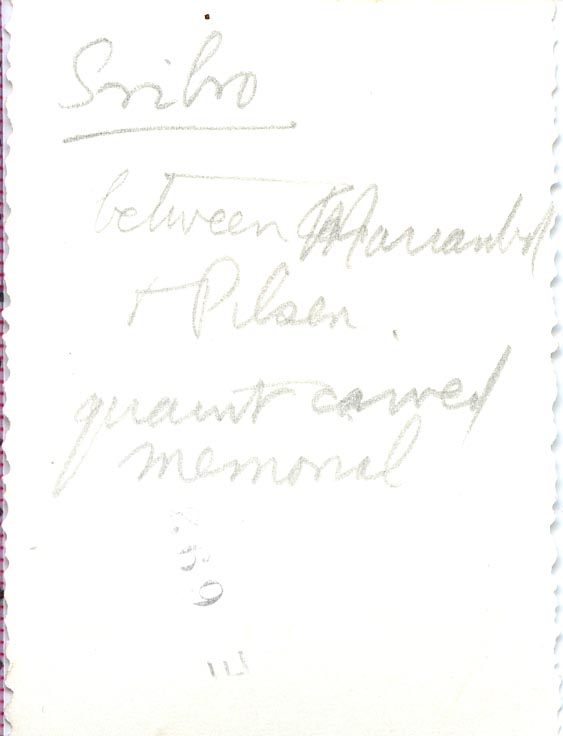 Svibro
between Marianbd
+ Pilsen
quaint carved
memorial